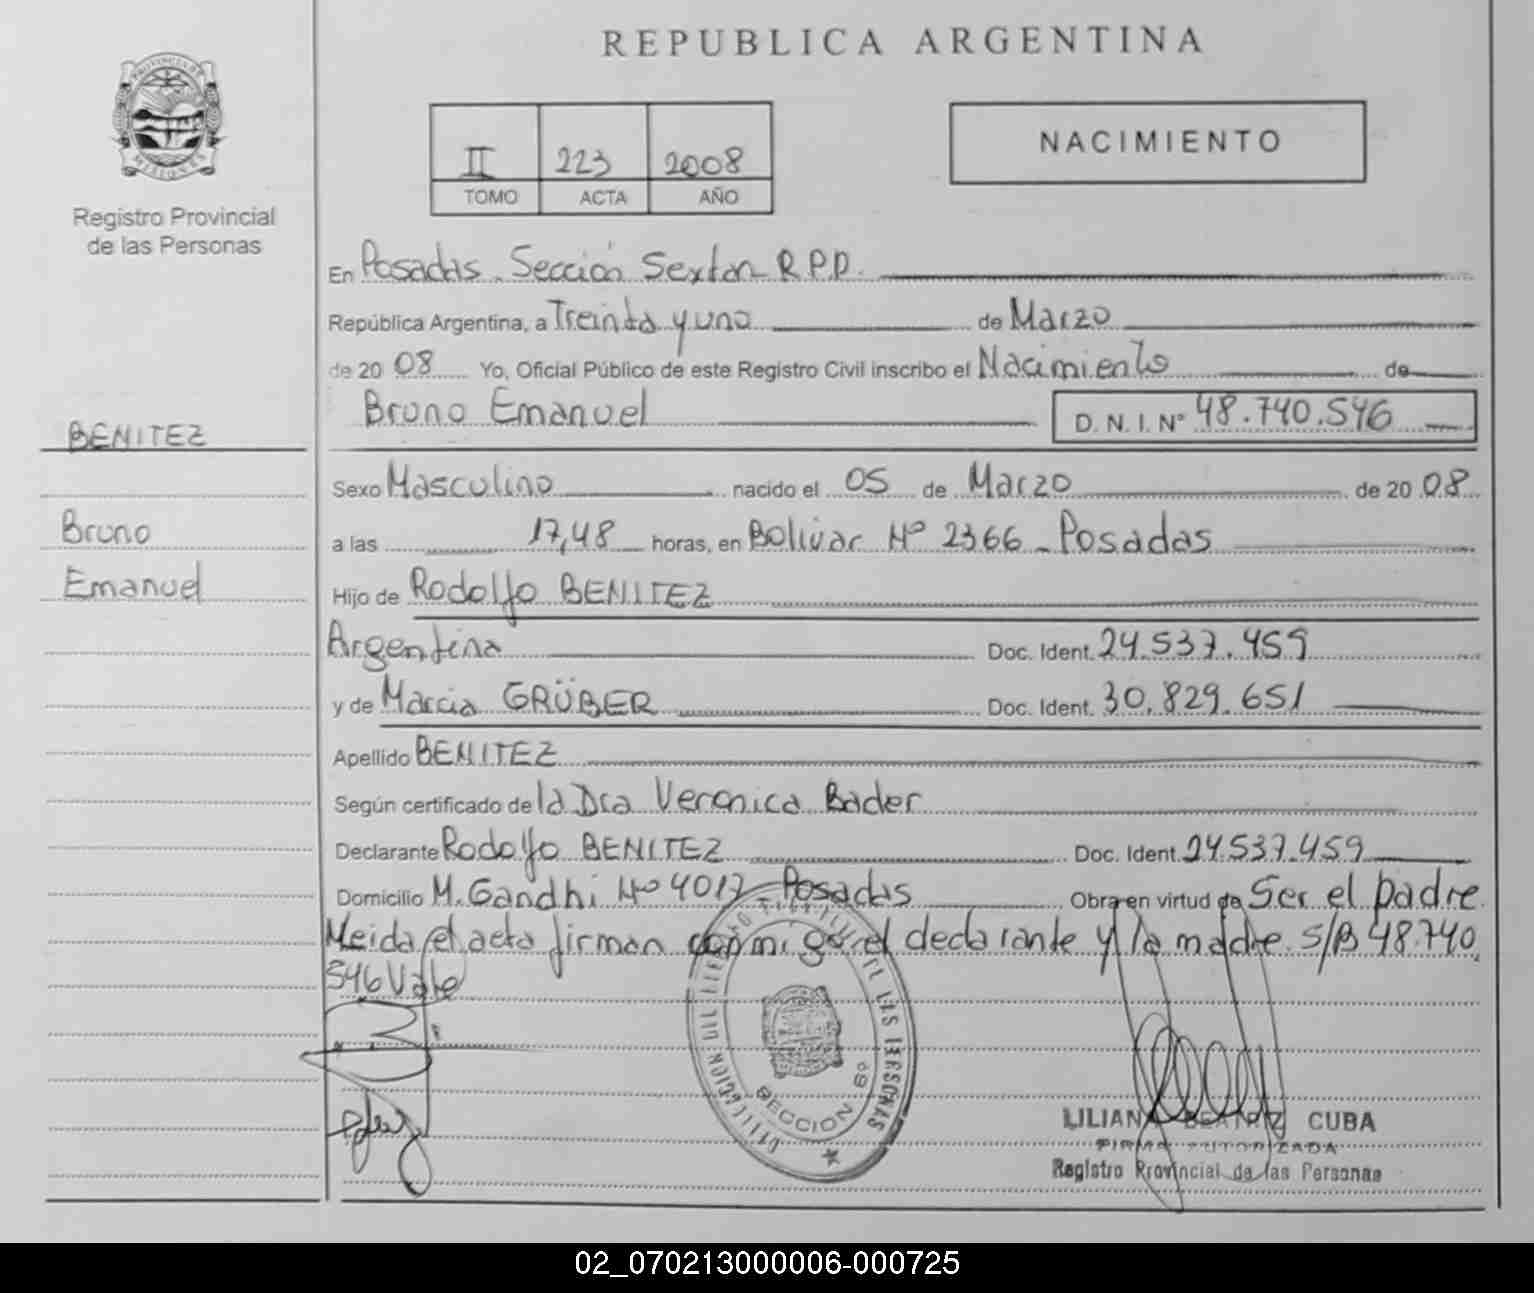 REPUBLICA ARGENTINA
PROVINCIA DE
MISIONES
Registro Provincial
de las Personas
II 223 2008
TOMO ACTA AÑO
NACIMIENTO
En Posadas. Sección Sexta R.P.P.
República Argentina, a Treinta y uno de Marzo
de 20 08 Yo, Oficial Público de este Registro Civil inscribo el Nacimiento de
Bruno Emanuel D. N. I. Nº 48.740.546
BENITEZ
Sexo Masculino nacido el 05 de Marzo de 20 08
Bruno
a las 17,48 horas, en Bolivar Nº 2366 - Posadas
Emanuel
Hijo de Rodolfo BENITEZ
Argentina Doc. Ident. 24.537.459
y de Marcia GRÜBER Doc. Ident. 30.829.651
Apellido BENITEZ
Según certificado de la Dra Veronica Bader
Declarante Rodolfo BENITEZ Doc. Ident. 24.537.459
Domicilio M. Gandhi Nº 4017 Posadas Obra en virtud de Ser el padre
Leida el acta firman conmigo el declarante y la madre. S/B 48.740.
546 Vale
SECCION 6º
LILIANA BEATRIZ CUBA
FIRMA AUTORIZADA
Registro Provincial de las Personas
02_070213000006-000725